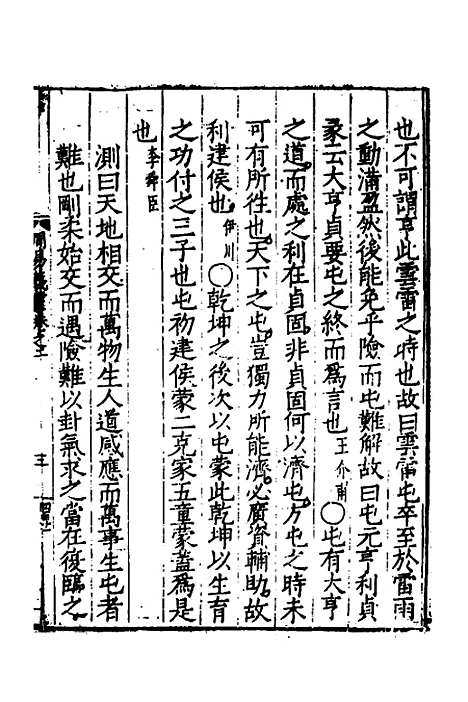 也不可謂亨此雲雷之時也故曰雲雷屯卒至於雷雨
之動滿盈然後能免乎險而屯難解故曰屯元亨利貞
彖云大亨貞要屯之終而爲言也王介甫○屯有大亨
之道而處之利在貞固非貞固何以濟屯方屯之時未
可有所往也天下之屯豈獨力所能濟必廣資輔助故
利建侯也伊川○乾坤之後次以屯蒙此乾坤以生育
之功付之三子也屯初建侯蒙二克家五童蒙蓋爲是
也李舜臣
測曰天地相交而萬物生人道感應而萬事生屯者
難也剛柔始交而遇險難以卦氣求之當在復臨之
周易義海卷之二